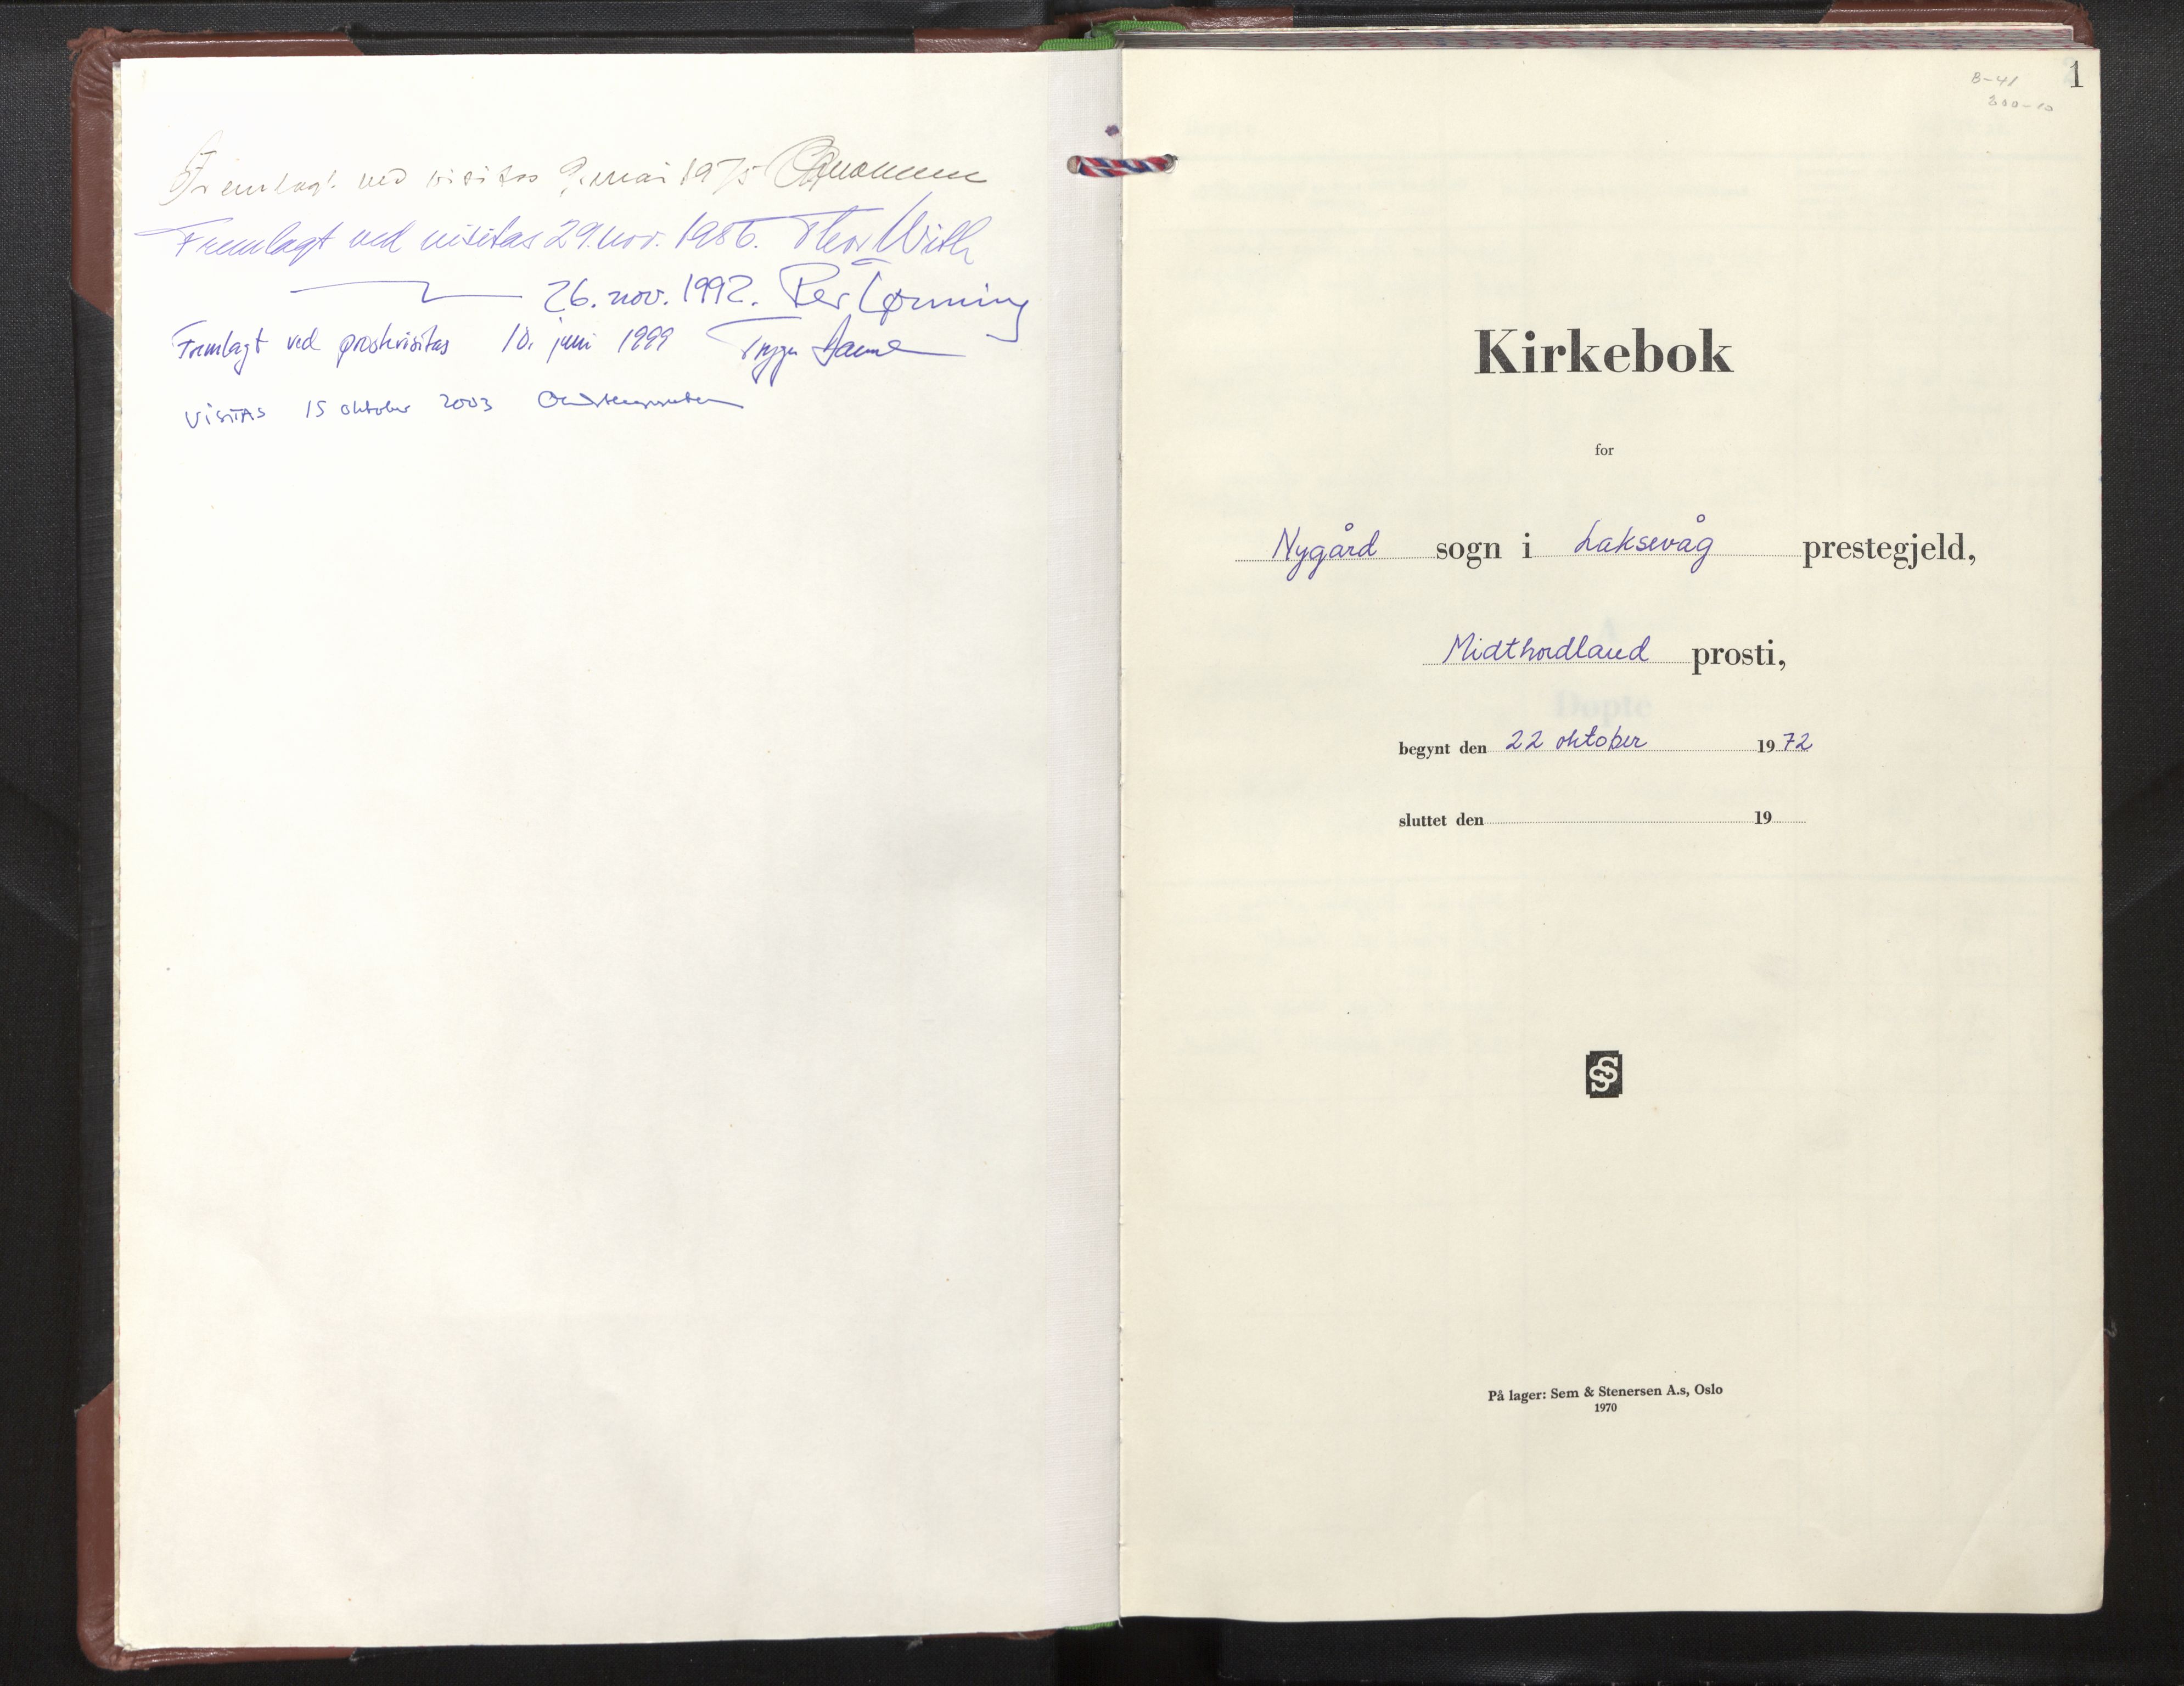 Fremlagt ved visitas 9. mai 1975
Fremlagt ved visitas 29. nov. 1986. Thor With
26. nov. 1992. Per Lønning
Fremlagt ved prostevisitas 10. juni 1999
VISITAS 15 oktober 2003
1
B-41
300-10
Kirkebok
for
Nygård sogn i Laksevåg prestegjeld,
Midthordland prosti,
begynt den 22 oktober 1972
sluttet den 19
SS
På lager: Sem & Stenersen A.s, Oslo
1970